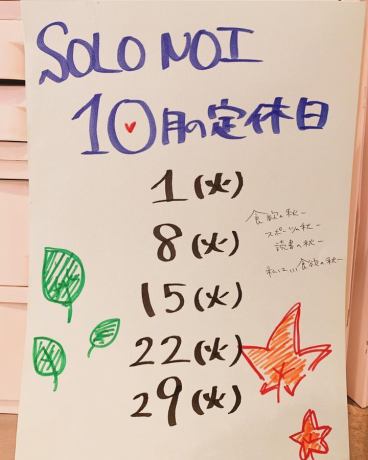 SOLO NOI
10月の定休日
1(火)
8(火)
15(火)
22(火)
29(火)
食欲の秋ー
スポーツの秋ー
読書の秋ー
私は…食欲の秋ー